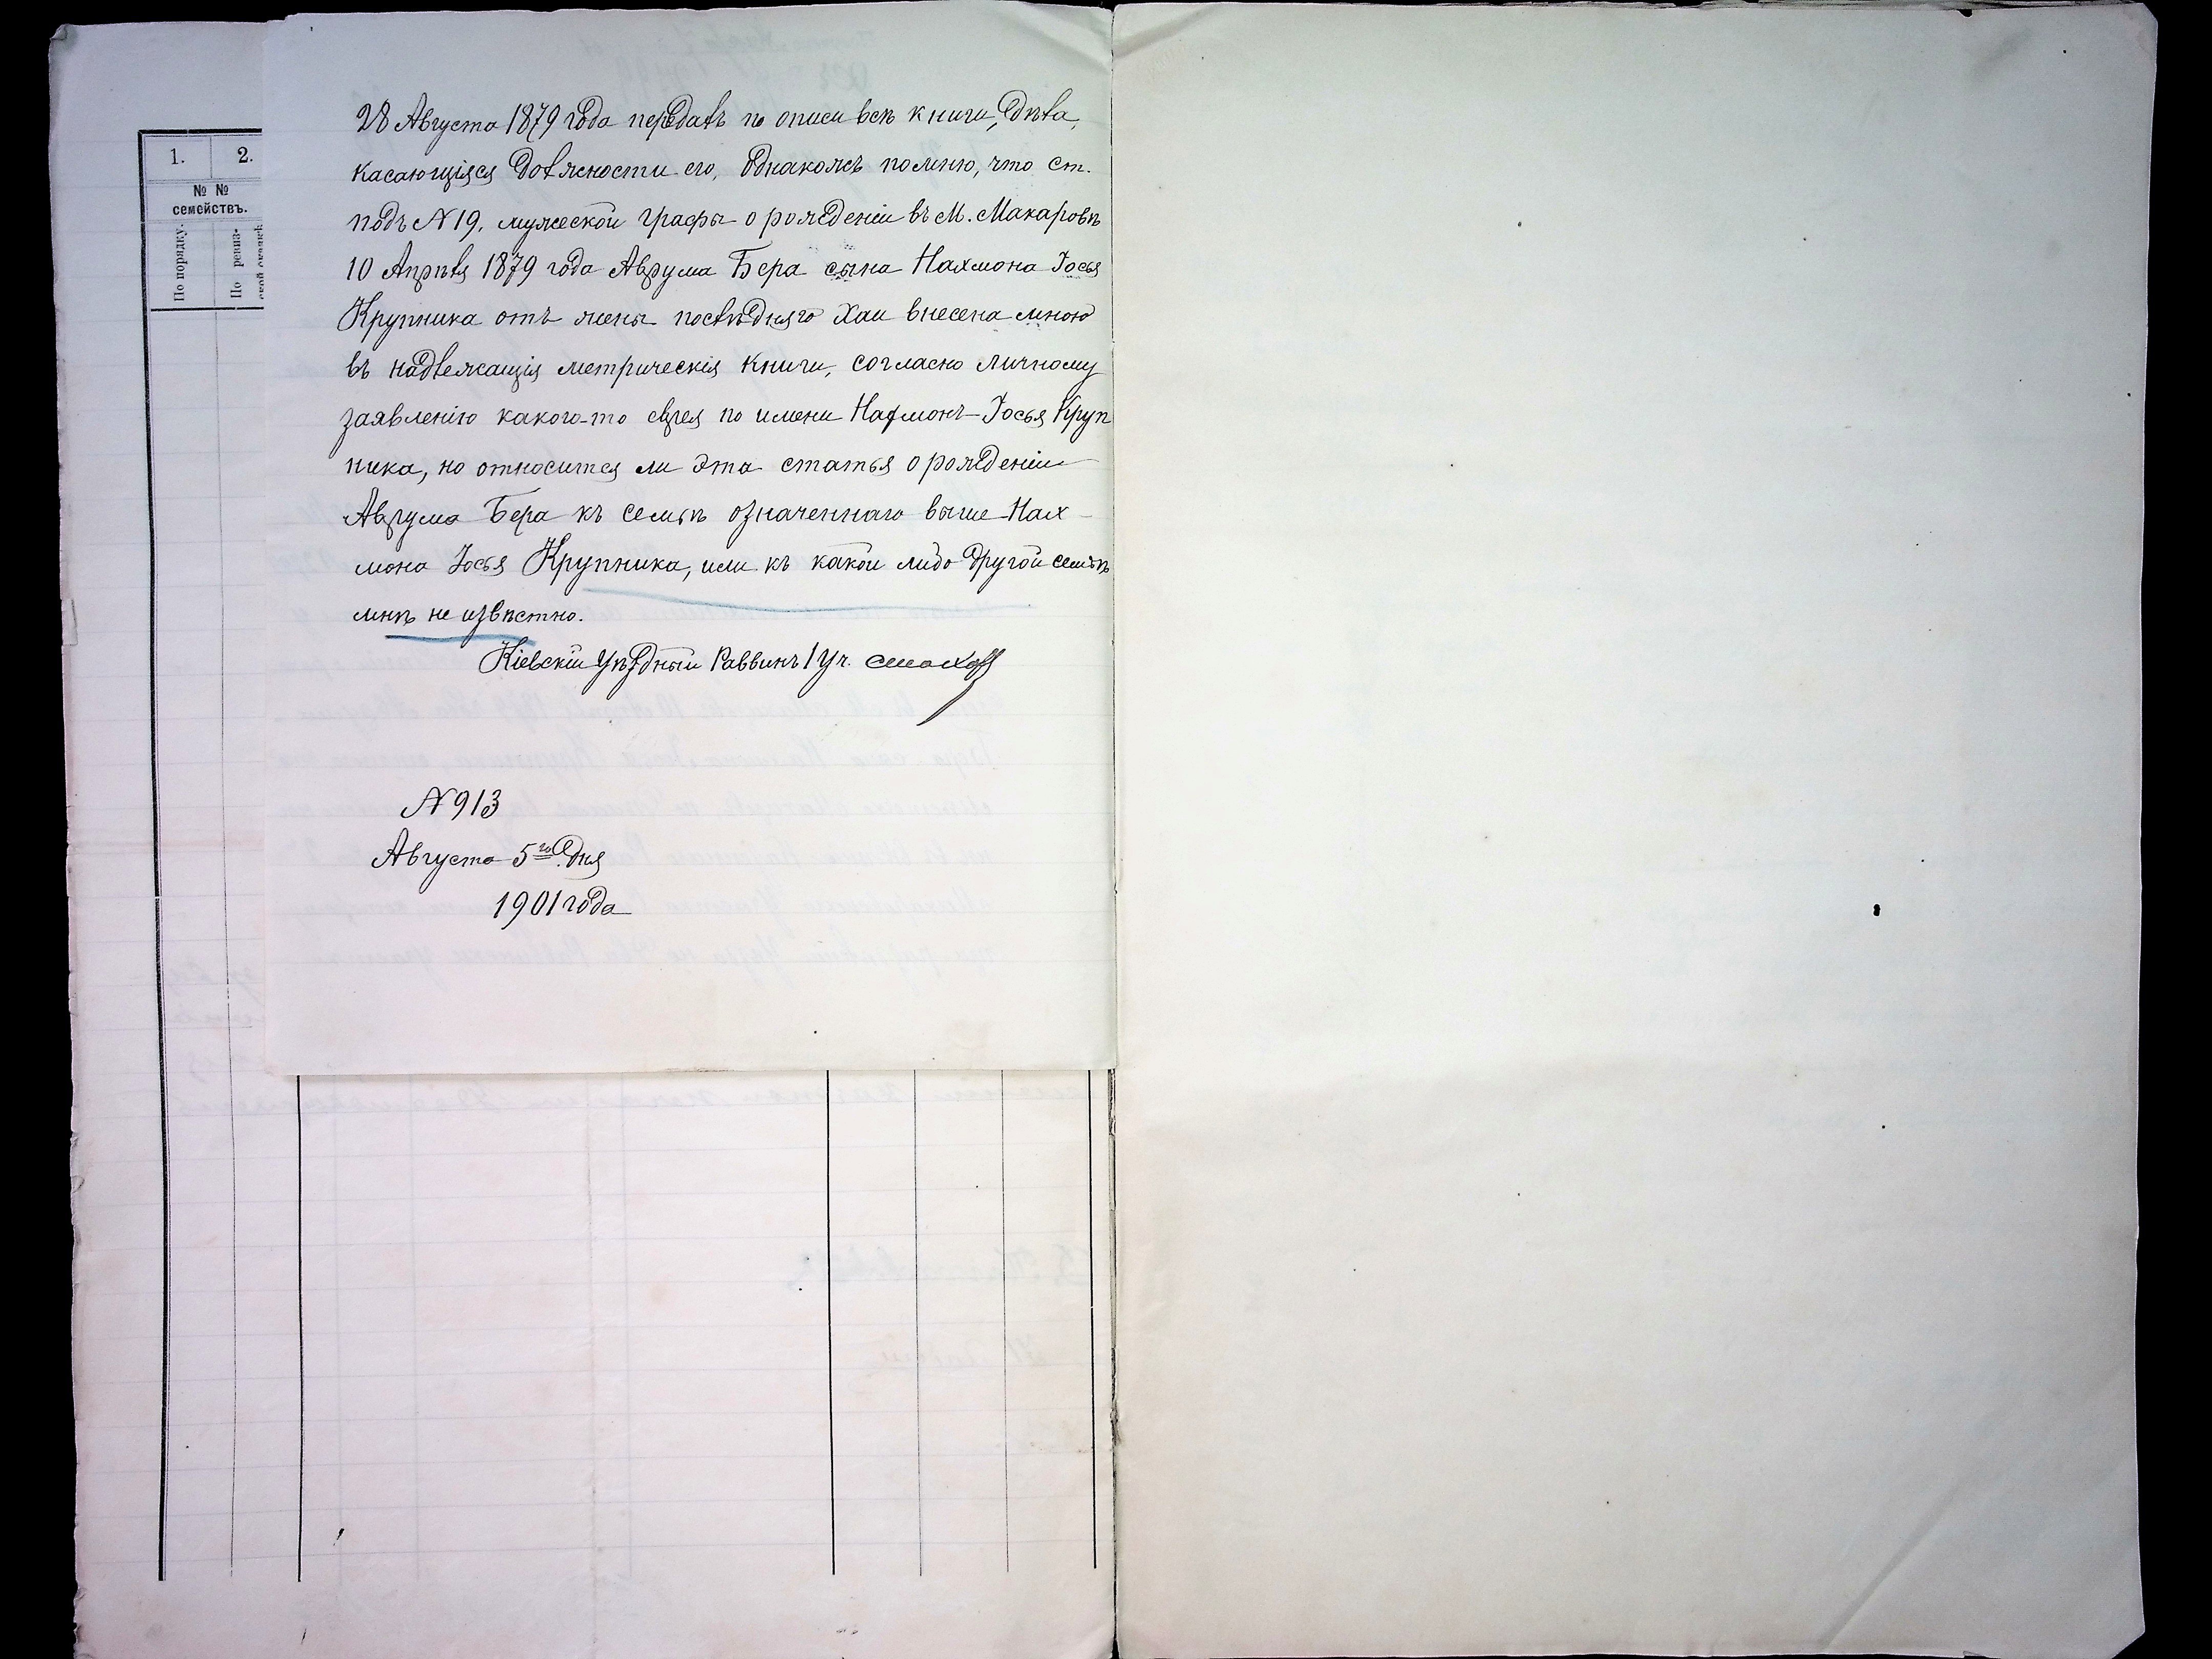 28 Августа 1879 года передалъ по описи всѣ книги, дѣла,
касающіяся должности его, однакожъ помню, что ст.
подъ №19, мужеской графы о рожденіи въ М. Макаровѣ
10 Апрѣля 1879 года Аврума Бера сына Нахмона Іосья
Крупника отъ жены послѣдняго Хаи внесена мною
въ надлежащія метрическія книги, согласно личному
заявленію какого-то еврея по имени Нахмонъ-Іосья Круп
ника, но относится ли эта статья о рожденіи
Аврума Бера къ семьѣ означеннаго выше Нах-
мона Іосья Крупника, или къ какой либо другой семьѣ
мнѣ не извѣстно.
Кіевскій Уѣздный Раввинъ 1 Уч.
№913
Августа 5го дня
1901 года
1. 2.
№ №
семействъ.
По порядку.
По ревиз-